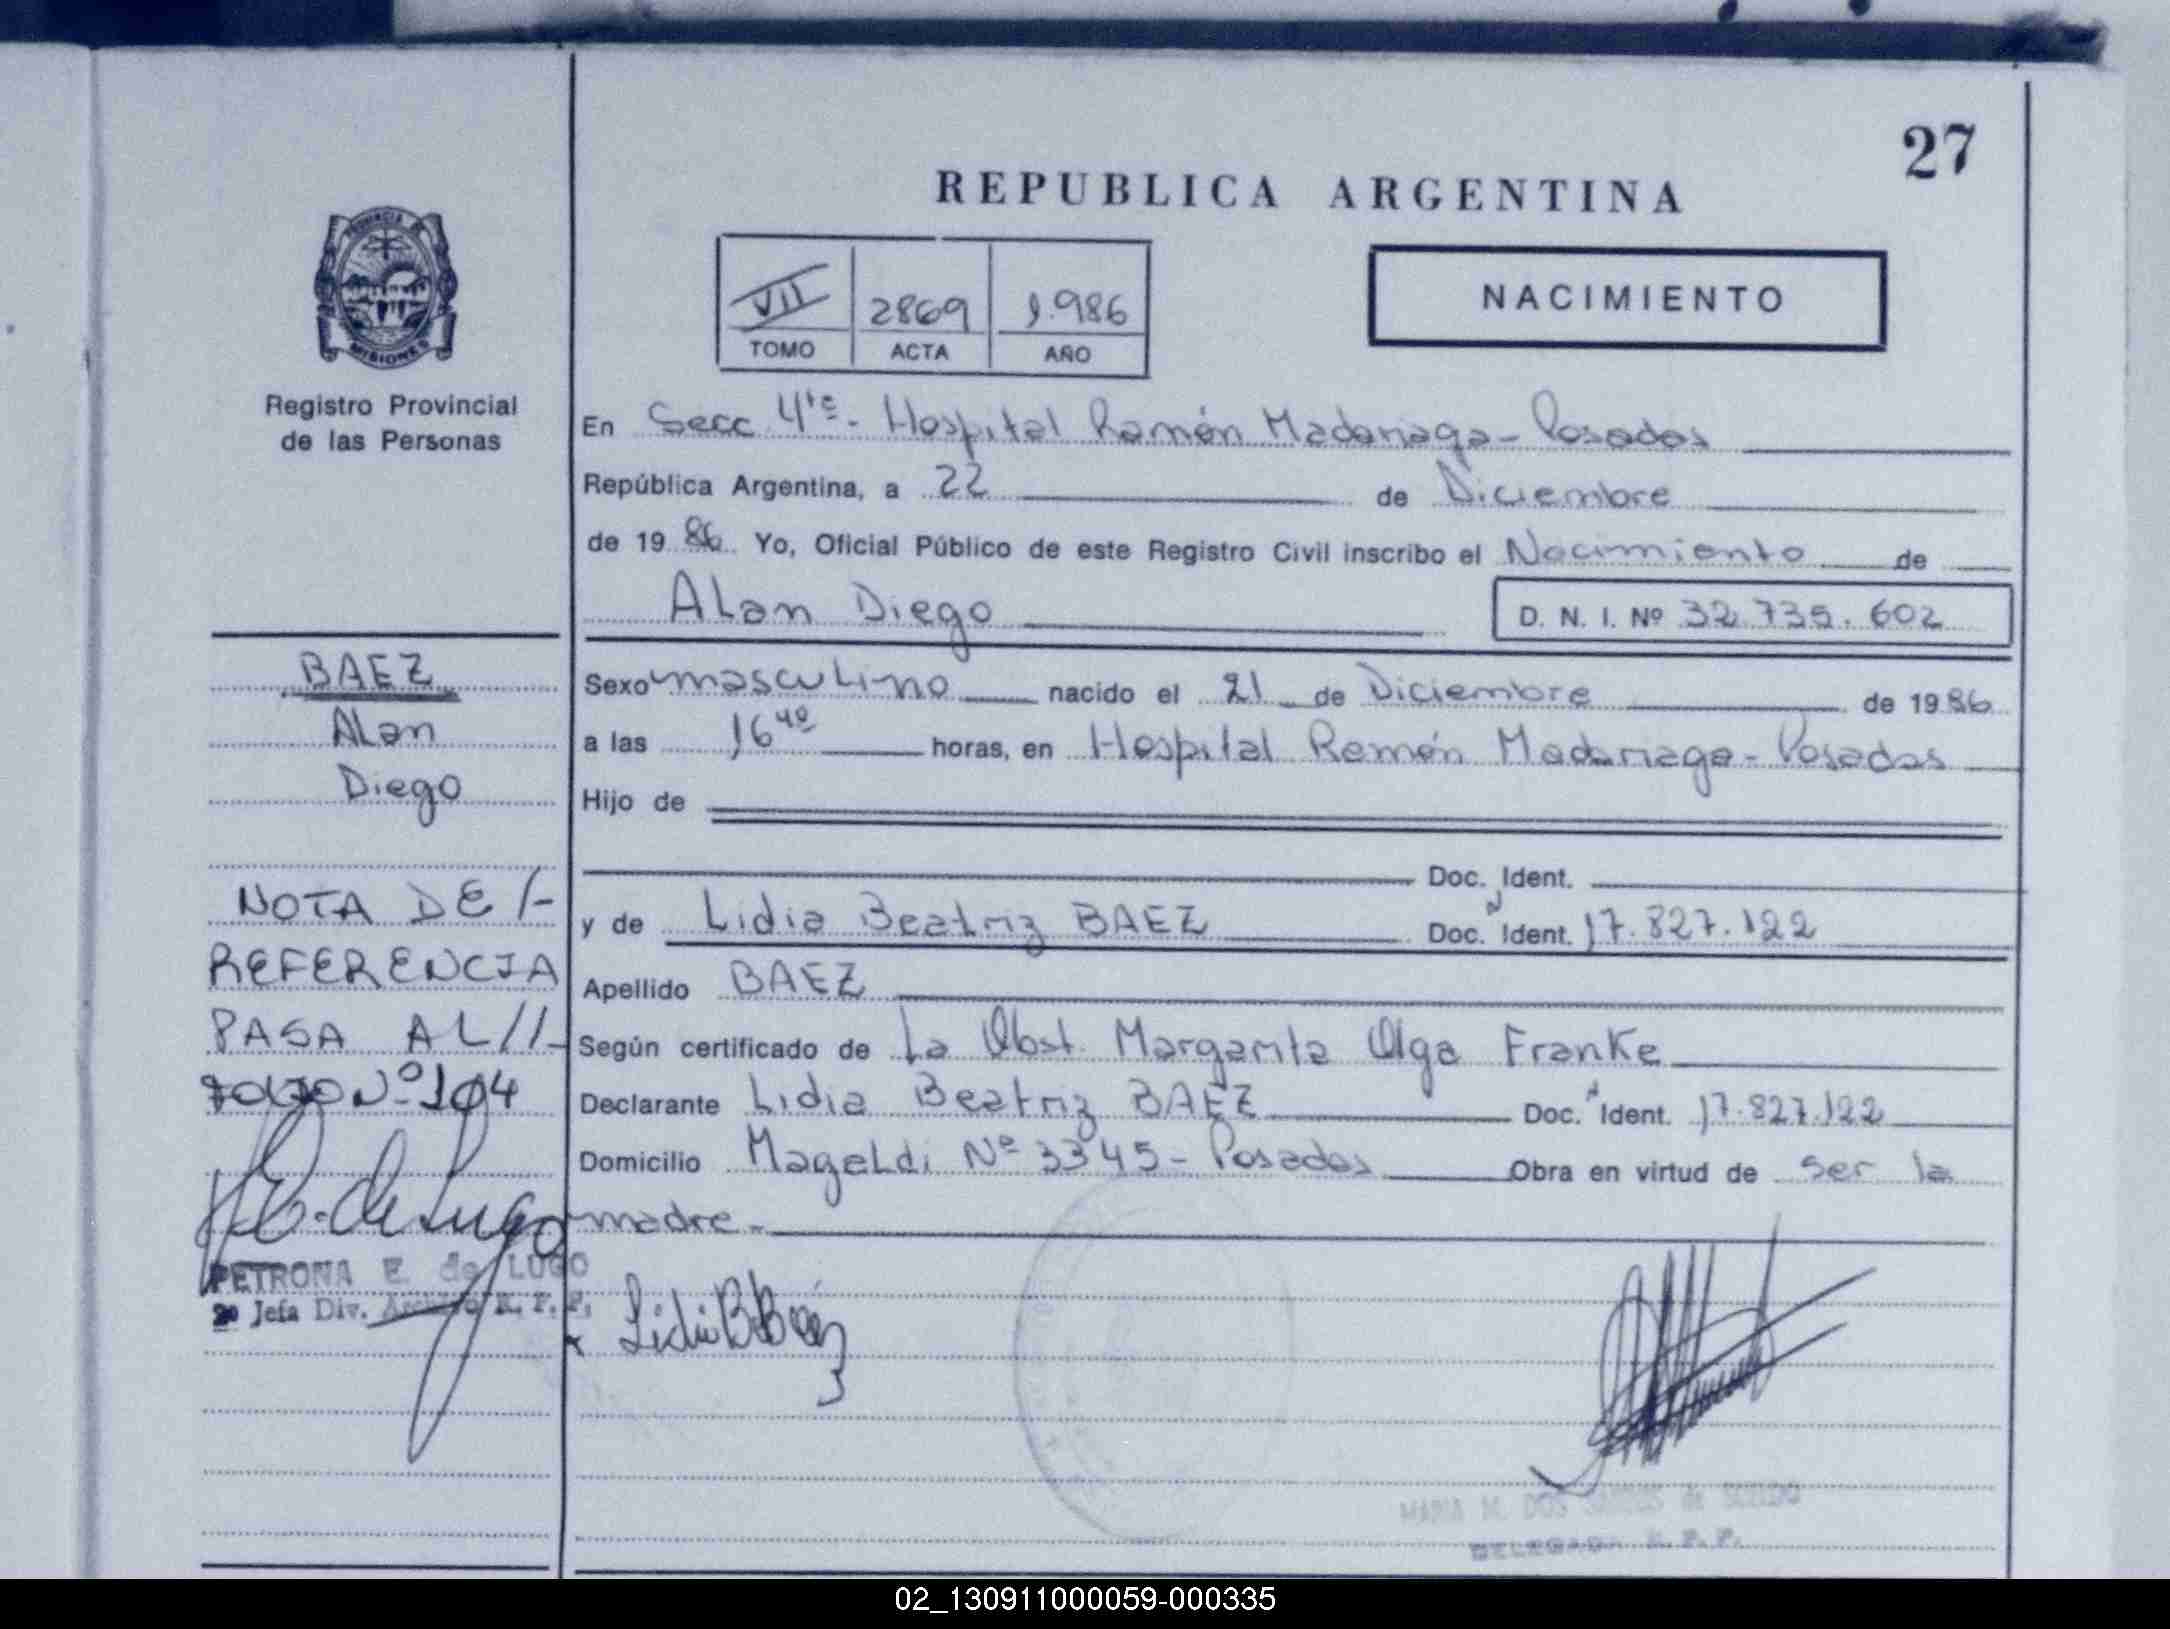 27
REPUBLICA ARGENTINA
PROVINCIA DE
MISIONES
VII 2869 1.986
TOMO ACTA AÑO
NACIMIENTO
Registro Provincial
de las Personas
En Secc 4ta - Hospital Ramón Madariaga - Posadas
República Argentina, a 22 de Diciembre
de 19 86 Yo, Oficial Público de este Registro Civil inscribo el Nacimiento de
ALan Diego D. N. I. Nº 32.735.602
BAEZ
ALan
Diego
Sexo masculino nacido el 21 de Diciembre de 19 86
a las 16 40 horas, en Hospital Ramón Madariaga - Posadas
Hijo de
Doc. Ident.
y de Lidia Beatriz BAEZ Doc. Ident. 17.827.122
Apellido BAEZ
Según certificado de La Obst. Margarita Olga Franke
Declarante Lidia Beatriz BAEZ Doc. Ident. 17.827.122
Domicilio MageLdi Nº 3345 - Posadas Obra en virtud de ser la
madre.-
NOTA DE /-
REFERENCIA
PASA AL //-
FOLIO Nº 104
PETRONA E. de LUGO
Jefa Div. Archivo R. P. P.
Lidia B Baez
MARIA M. DOS SANTOS de
DELEGADA R. P. P.
02_130911000059-000335